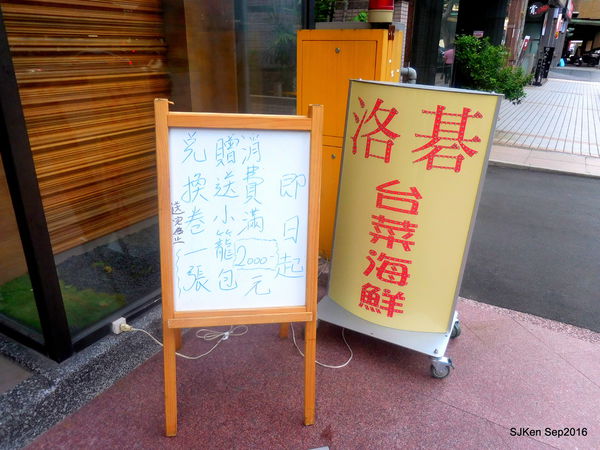 即日起
消費滿2000元
贈送小籠包
兌換卷一張
送完為止
洛碁
台菜海鮮
SJKen Sep2016